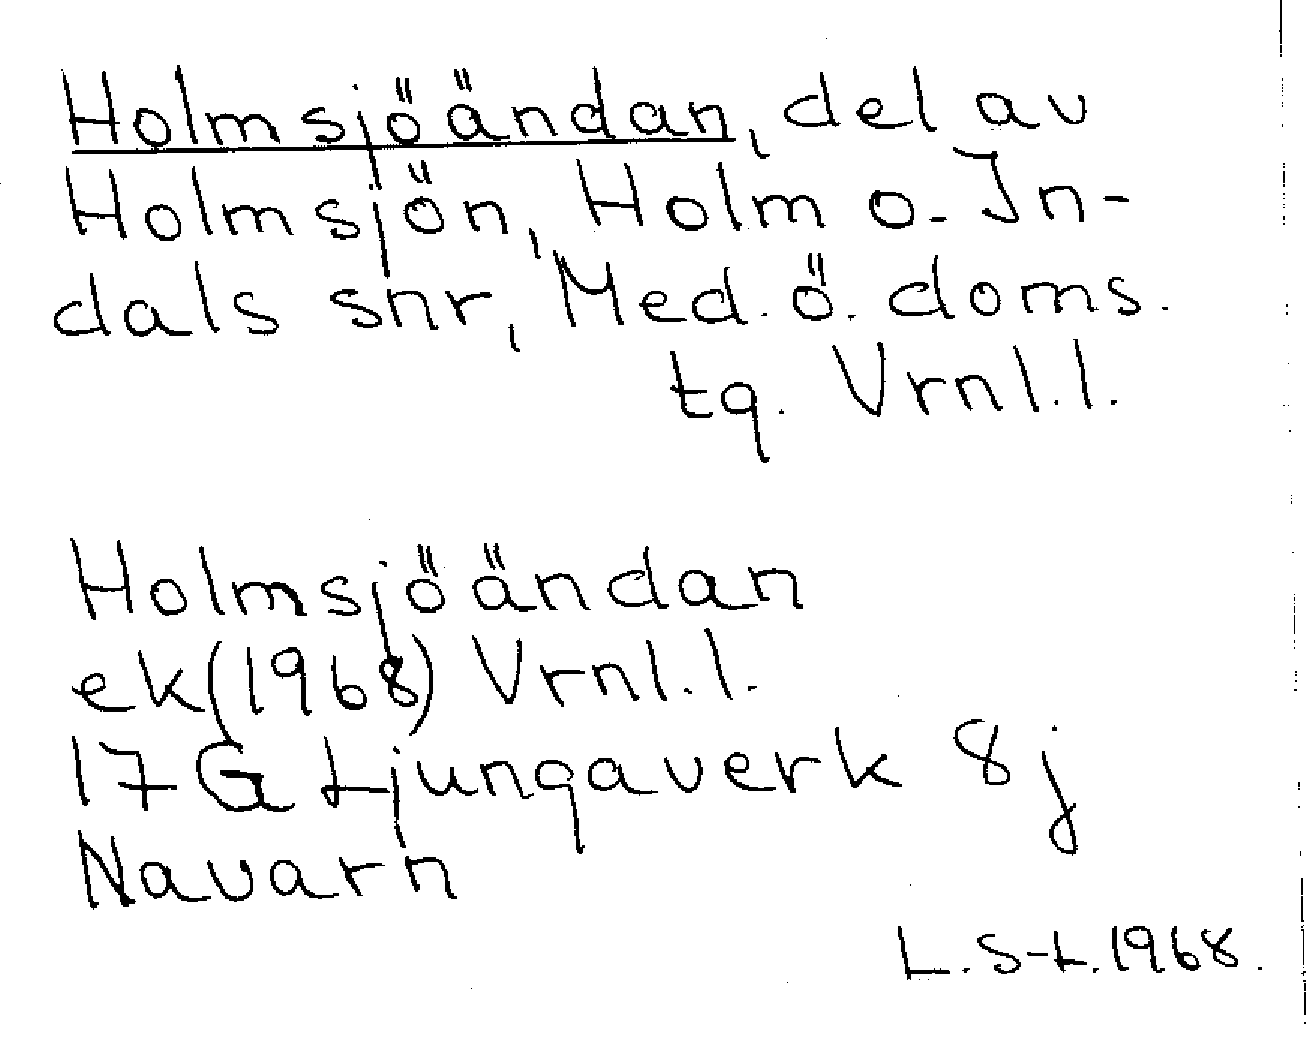 Holmsjöändan, del av
Holmsjön, Holm o. In-
dals snr, Med. ö. doms.
tg. Vrnl.l.
Holmsjöändan
ek (1968) Vrnl.l.
17 G Ljungaverk 8 j
Navarn
L.S-L. 1968.